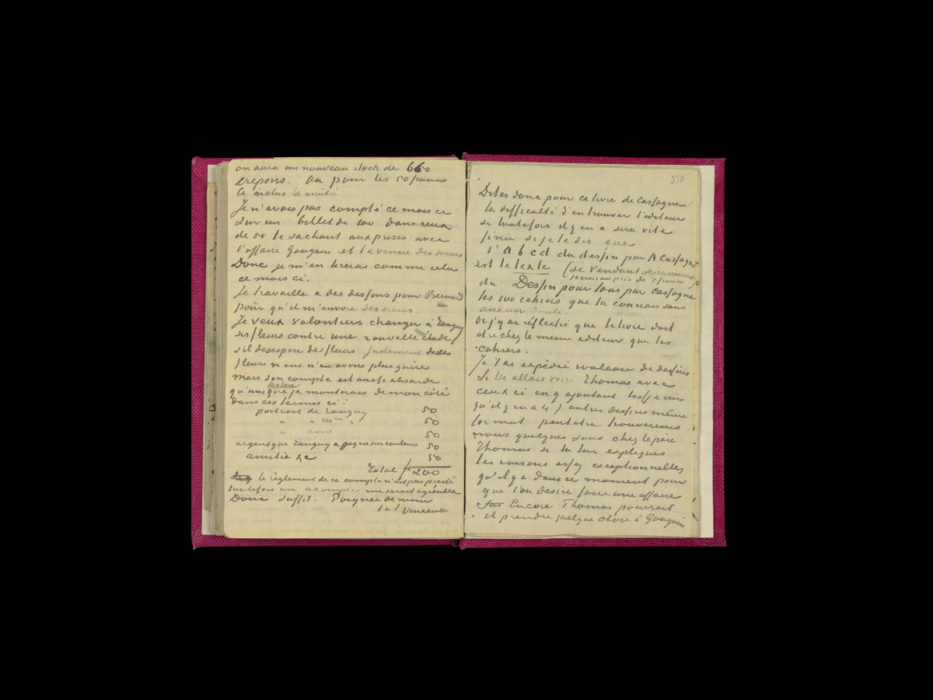 on aura un nouveau stock de 660
crepons. Ou pour les 50 francs
la moitié
Je n'avais pas compté ce mois ci
sur un billet de 100 dans ceux
de 50 te sachant aux prises avec
l'affaire Gauguin et la venue des soeurs
Donc je m'en tirerai comme cela
ce mois ci.
Je travaille a des dessins pour Bernard
pour qu'il m'envoie des siens.
Je veux volontiers changer à Tanguy
ses fleurs contre une nouvelle étude
s'il desespère des fleurs justement de ces
fleurs nous n'en avons plus guère
mais son compte est aussi absurde
qu'un que je monterais de mon côté
dans ces termes ci :
portrait de Tanguy 50
" " mme " 50
" " 50
argent que Tanguy a gagné sur couleurs 50
amitié &c 50
Total f 200
le règlement de ce compte n'est pas pressé
toutefois un acompte me serait agréable
Donc suffit. Poignée de main
t. à t. Vincent
Dites donc pour ce livre de Cassagne
la difficulté d'en trouver l'editeur
si toutefois il y en a sera vite
finie si je te dis que
l'A b c d du dessin par A Cassagne
est le texte (se vendant séparément
du Dessin pour tous par Cassagne
les 100 cahiers que tu connais sans
aucun doute.
Or j'y ai réflechi que le livre doit
être chez le meme editeur que les
cahiers.
Je t'ai expédié rouleau de dessins
Si tu allais voir Thomas avec
ceux ci en y ajoutant
qu'il y en a 4) autres dessins même
format peut être trouverions
nous quelques sous chez le père
Thomas si tu lui expliques
les raisons assez exceptionnelles
qu'il y a dans ce moment pour
que l'on desire faire une affaire
Encore Thomas pourrait
il prendre quelque chose à Gauguin